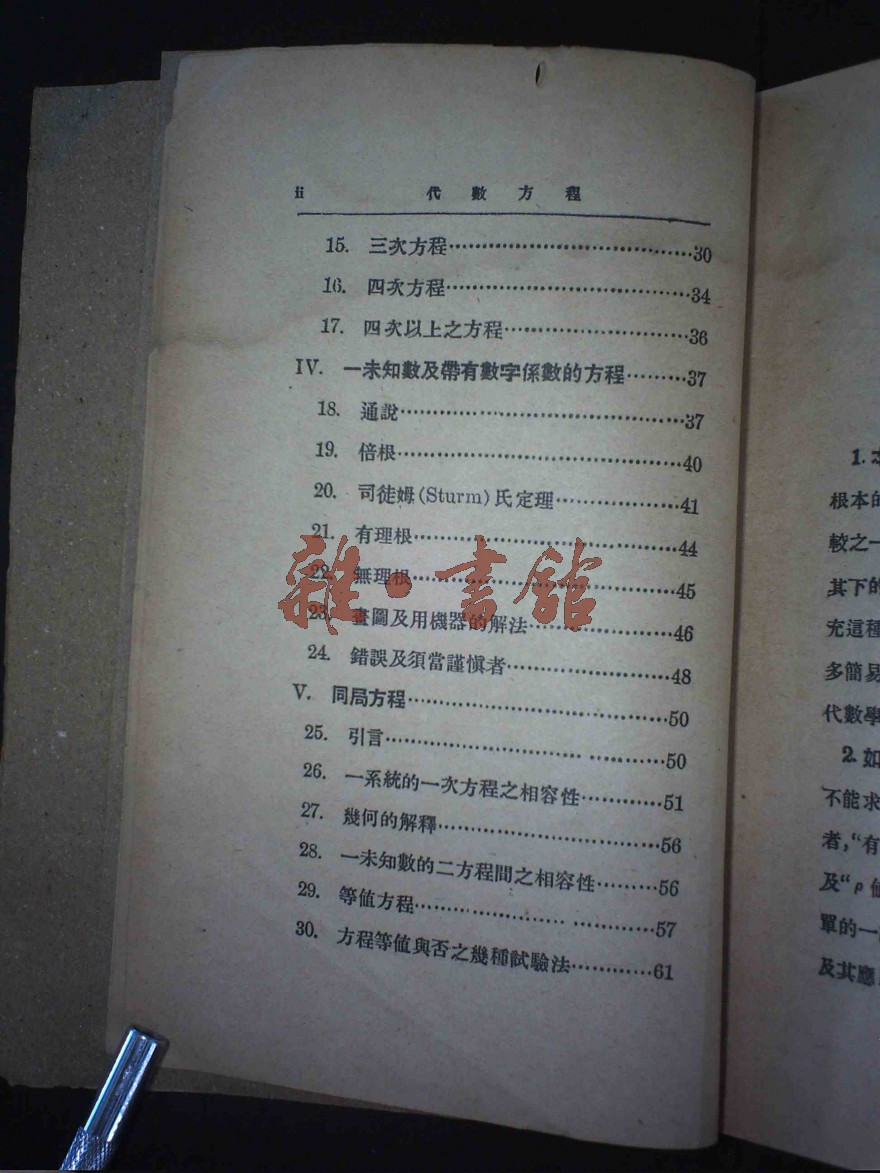 ii 代數方程
15. 三次方程……30
16. 四次方程……34
17. 四次以上之方程……36
IV. 一未知數及帶有數字係數的方程……37
18. 通說……37
19. 倍根……40
20. 司徒姆(Sturm)氏定理……41
21. 有理根……44
22. 無理根……45
23. 畫圖及用機器的解法……46
24. 錯誤及須當謹慎者……48
V. 同局方程……50
25. 引言……50
26. 一系統的一次方程之相容性……51
27. 幾何的解釋……56
28. 一未知數的二方程間之相容性……56
29. 等值方程……57
30. 方程等值與否之幾種試驗法……61
雜·書館
1.
根本的
較之一
其下的
充這種
多簡易
代數學
2. 如
不能求
者,“有
及“ρ值
單的一
及其應